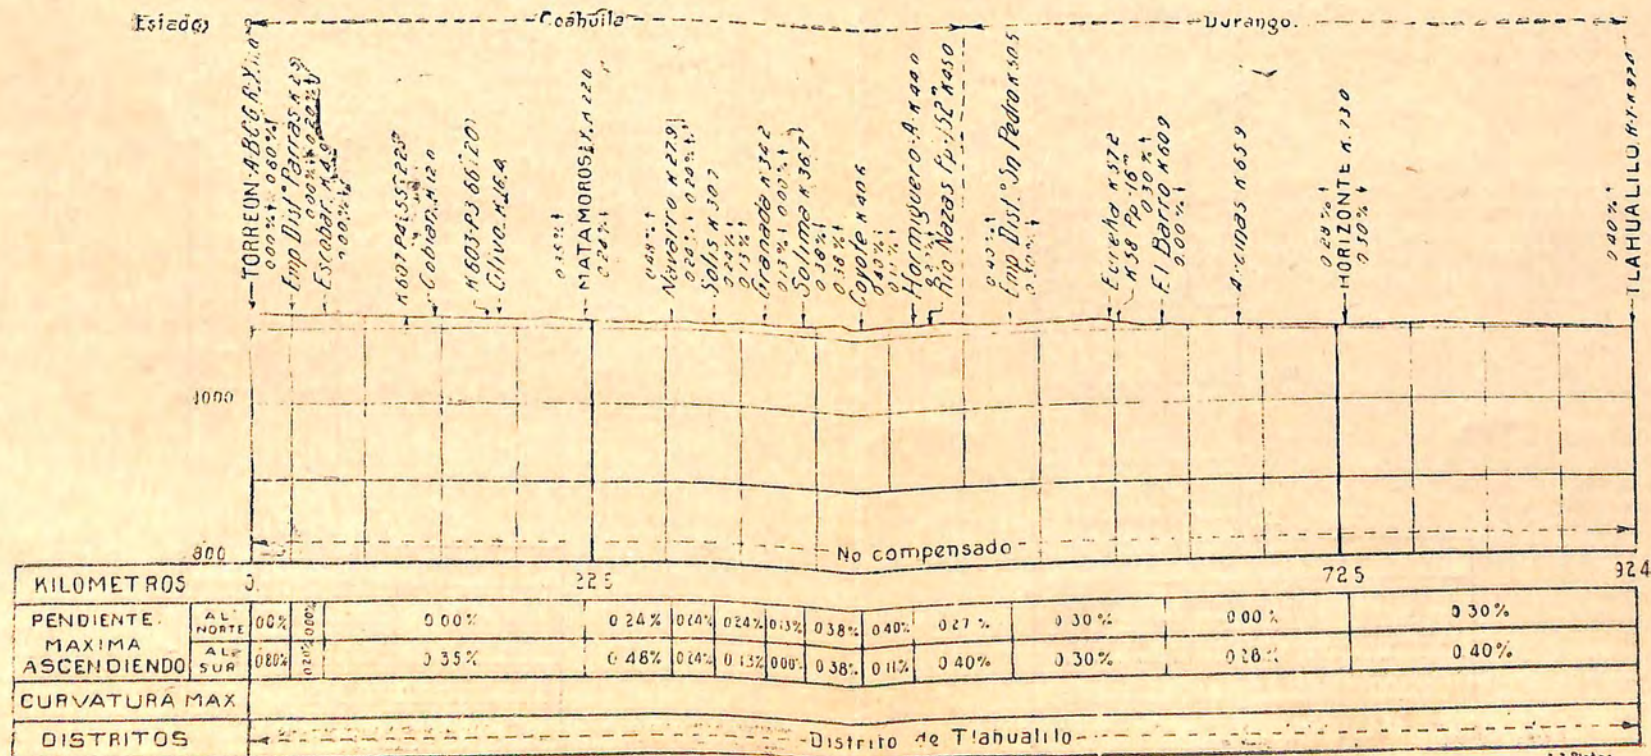 Estados Coahuila Durango.
TORREON-A.B.C.G.R.Y.
0.00% 0.80%
Emp Dist° Parras K 2.5
0.00% 0.20%
Escobar. K 4.9
0.00%
K607 P4 55 223
Cobian. K 12.0
K603-P3 66 120
Oliva. K 16.4
0.35%
MATAMOROS. Y. K 22.0
0.24%
0.48%
Navarro K 27.9
0.24% 0.24%
Solis K 30.7
0.24%
0.13%
Granada K 34.2
0.13% 0.00%
Solima K 36.7
0.38%
0.38%
Coyote K 40.6
0.40%
0.11%
Hormiguero-A-K 44.0
0.27%
Rio Nazas Pp. 152 K 45.0
0.40%
Emp Dist.° Sn Pedro K 50.5
0.30%
Eureka K 57.2
K 58 Pp. 16
0.30%
El Barro K 60.9
0.00%
Arcinas K 65.9
0.28%
HORIZONTE K. 73.0
0.30%
0.40%
TLAHUALILO.
1000
800
No compensado
KILOMETROS 0. 22.5 72.5 92.4
PENDIENTE MAXIMA ASCENDIENDO
AL NORTE 0.0% 0.00% 0.00% 0.24% 0.24% 0.24% 0.13% 0.38% 0.40% 0.27% 0.30% 0.00% 0.30%
AL SUR 0.80% 0.20% 0.35% 0.48% 0.24% 0.13% 0.00% 0.38% 0.11% 0.40% 0.30% 0.28% 0.40%
CURVATURA MAX
DISTRITOS Distrito de Tlahualilo